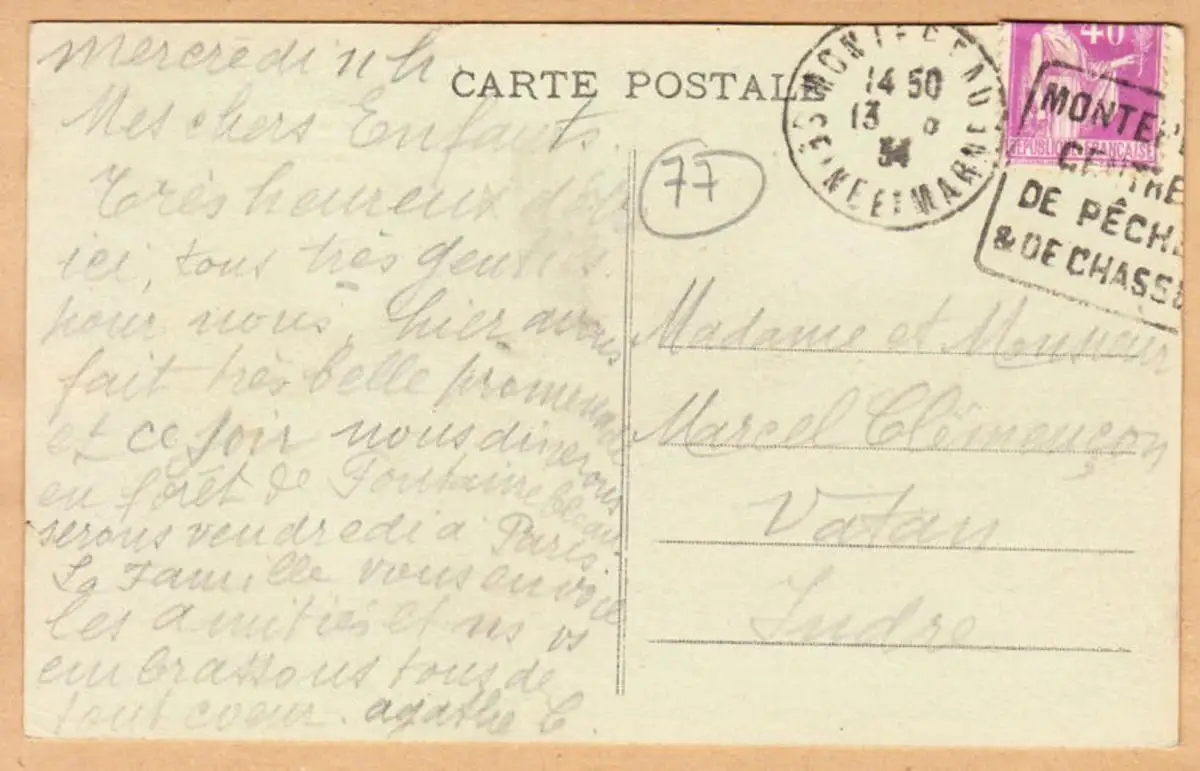 mercredi 11 h
Mes chers Enfants.
Très heureux d'être
ici, tous très gentils
pour nous, hier avons
fait très belle promenade
et ce soir nous dinerons
en forêt de Fontainebleau
serons vendredi à Paris.
La Famille vous envoie
les amitiés et ns vs
embrassons tous de
tout coeur. agathe C.
CARTE POSTALE
77
14 50
13
34
SEINE ET MARNE
40
REPUBLIQUE FRANÇAISE
CENTRE
DE PÊCHE
& DE CHASSE
Madame et Monsieur
Marcel Clémençon
Vatan
Indre